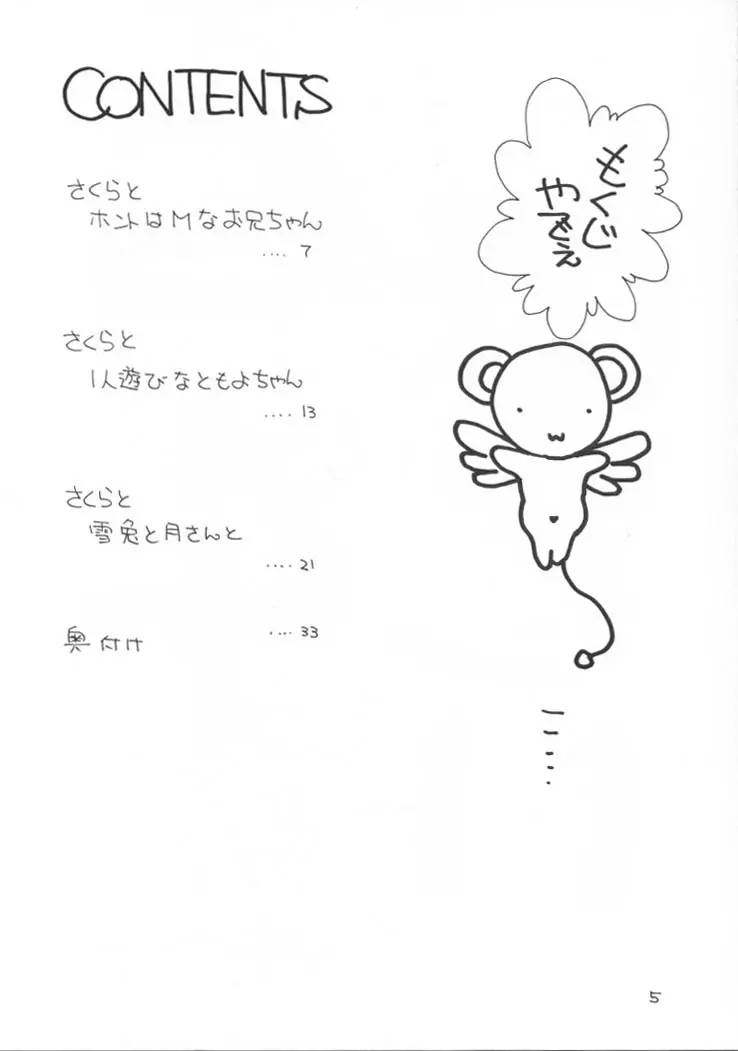 CONTENTS
さくらと
ホントはMなお兄ちゃん
.... 7
さくらと
1人遊びなともよちゃん
.... 13
さくらと
雪兔と月さんと
.... 21
奥付け .... 33
もくじ
やでえ
5